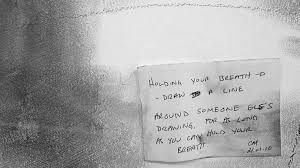 HOLDING YOUR BREATH -
- DRAW A LINE
AROUND SOMEONE ELE'S
DRAWING, FOR AS LONG
AS YOU CAN HOLD YOUR
BREATH.
CM